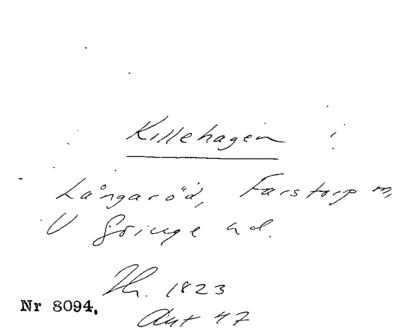 Killehagen i
Långaröd, Farstorp m,
V Göinge hd.
Th. 1823
Nr 8094. Ant 47